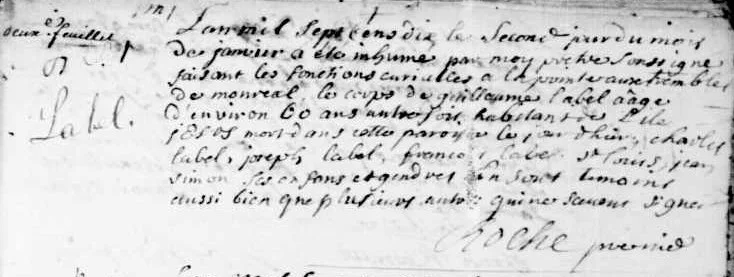 deux.e feuillet
Label.
L'an mil sept cens dix le second jour du mois
de janvier a ete inhumé par moy pretre soussigne
faisant les fonctions curialles a la pointe aux trembles
de monreal, le corps de guillaume label aage
d'environ 60 ans autre fois habitant de L'ile
jesus mort dans cette paroisse le jour d'hier, charles
label, joseph label, francois label st louis, jean
simon ses enfans et gendres en sont temoins
aussi bien que plusieurs autres qui ne scavent signer